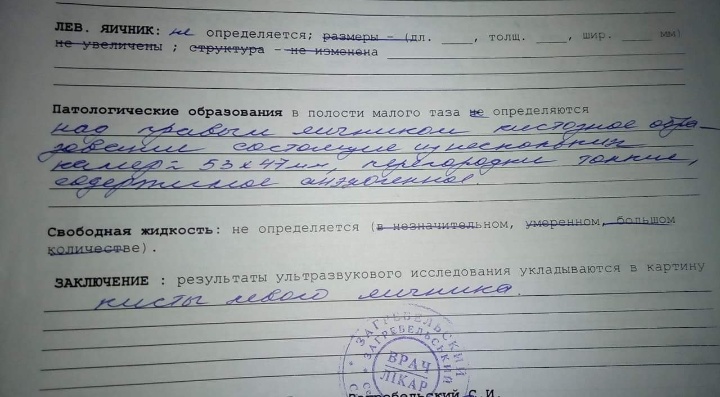 ЛЕВ. ЯИЧНИК: не определяется; размеры – (дл. ____, толщ. ____, шир. ____ мм)
не увеличены ; структура – не изменена
Патологические образования в полости малого таза не определяются
над правым яичником кистозное обра-
зование состоящие из нескольких
камер d 53 х 47 мм, перегородки тонкие,
содержимое анэхогенное.
Свободная жидкость: не определяется (в незначительном, умеренном, большом
количестве).
ЗАКЛЮЧЕНИЕ : результаты ультразвукового исследования укладываются в картину
кисты левого яичника.
ЗАГРЕБЕЛЬСКИЙ
ЗАГРЕБЕЛЬСЬКИЙ
ВРАЧ
ЛІКАР
Загребельский С.И.